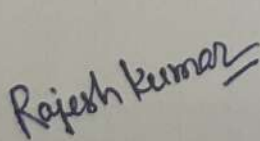 Rajesh Kumar